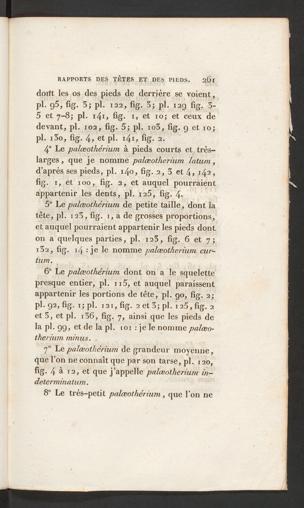 RAPPORTS DES TÊTES ET DES PIEDS. 261
dont les os des pieds de derrière se voient,
pl. 95, fig. 3; pl. 122, fig. 3; pl. 129 fig. 3-
5 et 7-8; pl. 141, fig. 1, et 10; et ceux de
devant, pl. 102, fig. 5; pl. 103, fig. 9 et 10;
pl. 130, fig. 4, et pl. 141, fig. 2.
4° Le palæothérium à pieds courts et très-
larges, que je nomme palæotherium latum,
d'après ses pieds, pl. 140, fig. 2, 3 et 4, 142,
fig. 1, et 100, fig. 2, et auquel pourraient
appartenir les dents, pl. 125, fig. 4.
5° Le palæothérium de petite taille, dont la
tête, pl. 123, fig. 1, a de grosses proportions,
et auquel pourraient appartenir les pieds dont
on a quelques parties, pl. 123, fig. 6 et 7;
132, fig. 14 : je le nomme palæotherium cur-
tum.
6° Le palæothérium dont on a le squelette
presque entier, pl. 115, et auquel paraissent
appartenir les portions de tête, pl. 90, fig. 2;
pl. 92, fig. 1; pl. 121, fig. 2 et 3; pl. 125, fig. 2
et 3, et pl. 136, fig. 7, ainsi que les pieds de
la pl. 99, et de la pl. 101 : je le nomme palæo-
therium minus.
7° Le palæothérium de grandeur moyenne,
que l'on ne connaît que par son tarse, pl. 120,
fig. 4 à 12, et que j'appelle palæotherium in-
determinatum.
8° Le très-petit palæothérium, que l'on ne